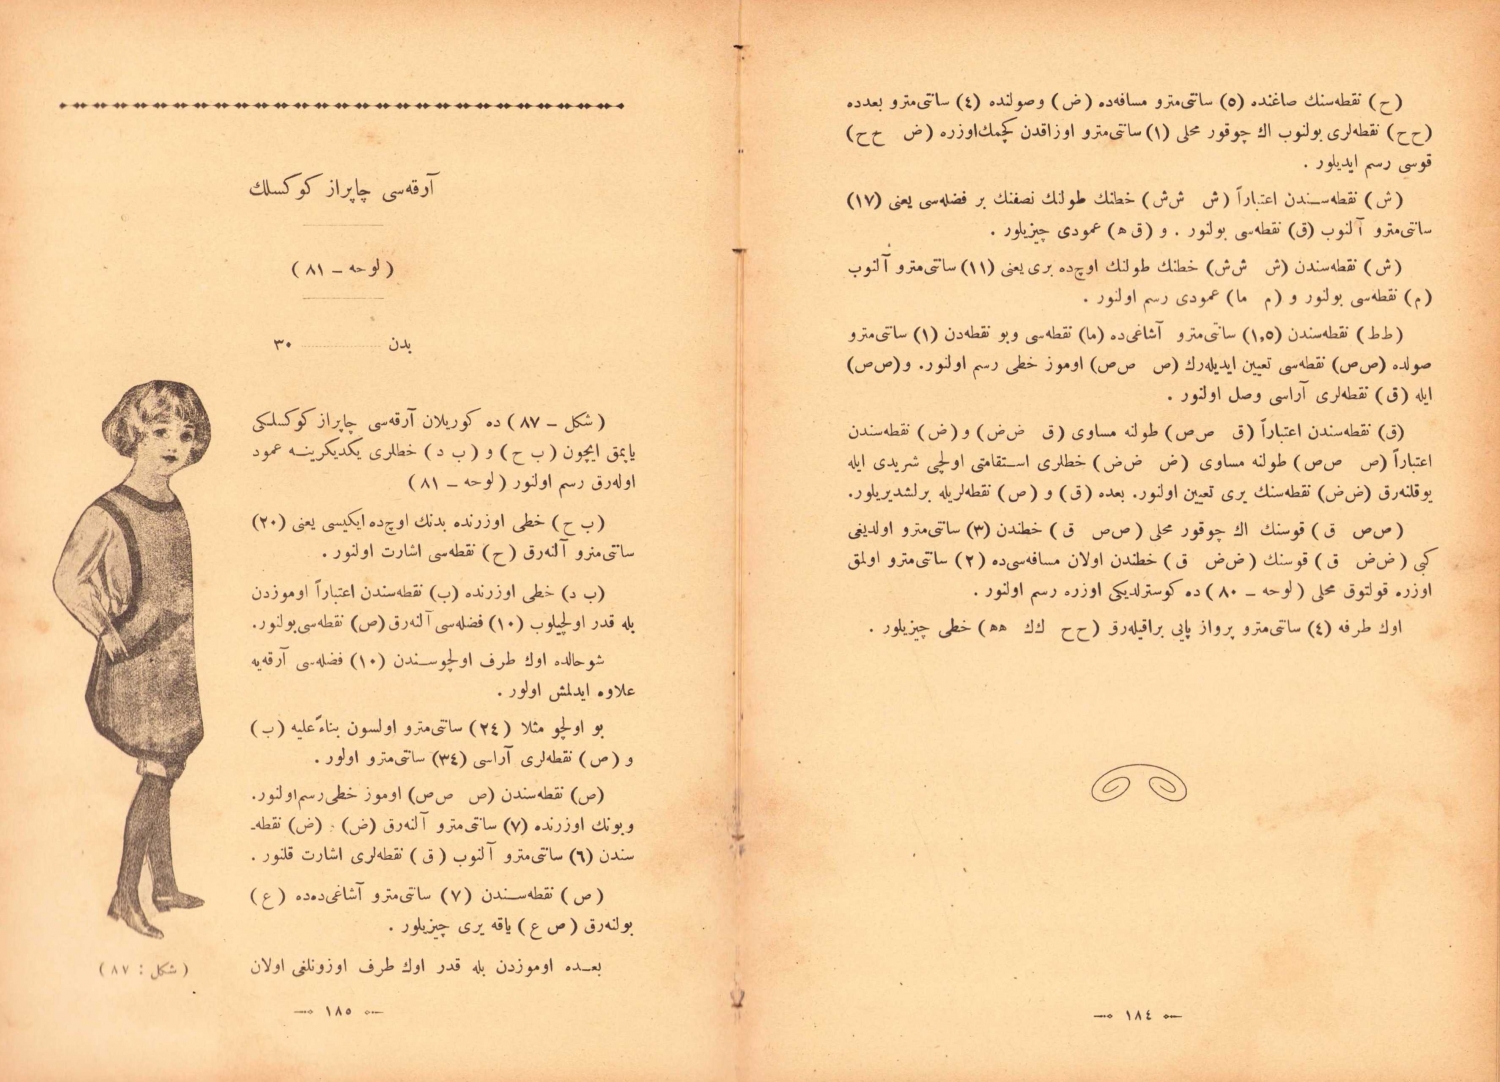 (ح) نقطه‌سنك صاغنده (٥) سانتی‌مترو مسافه‌ده (ض) وصولنده (٤) سانتی‌مترو بعدده
(ح‌ح) نقطه‌لری بولنوب اك چوقور محلی (١) سانتی‌مترو اوزاقدن كچمك‌اوزره (ض ح‌ح)
قوسی رسم ایدیلور .
(ش) نقطه‌سندن اعتباراً (ش ش‌ش) خطنك طولنك نصفنك بر فضله‌سی یعنی (١٧)
سانتی‌مترو آلنوب (ق) نقطه‌سی بولنور . و (ق ه) عمودی چیزیلور .
(ش) نقطه‌سندن (ش ش‌ش) خطنك طولنك اوچ‌ده بری یعنی (١١) سانتی‌مترو آلنوب
(م) نقطه‌سی بولنور و (م ما) عمودی رسم اولنور .
(ط‌ط) نقطه‌سندن (١,٥) سانتی‌مترو آشاغی‌ده (ما) نقطه‌سی وبو نقطه‌دن (١) سانتی‌مترو
صولده (ص‌ص) نقطه‌سی تعیین ایدیله‌رك (ص ص‌ص) اوموز خطی رسم اولنور. و(ص‌ص)
ایله (ق) نقطه‌لری آراسی وصل اولنور .
(ق) نقطه‌سندن اعتباراً (ق ص‌ص) طولنه مساوی (ق ض‌ض) و (ض) نقطه‌سندن
اعتباراً (ص ص‌ص) طولنه مساوی (ض ض‌ض) خطلری استقامتی اولچی شریدی ایله
یوقلنه‌رق (ض‌ض) نقطه‌سنك یری تعیین اولنور. بعده (ق) و (ص) نقطه‌لریله برلشدیریلور.
(ص‌ص ق) قوسنك اك چوقور محلی (ص‌ص ق) خطندن (٣) سانتی‌مترو اولدیغی
كبی (ض‌ض ق) قوسنك (ض‌ض ق) خطندن اولان مسافه‌سی‌ده (٢) سانتی‌مترو اولمق
اوزره قولتوق محلی (لوحه – ٨٠) ده كوسترلدیكی اوزره رسم اولنور .
اوك طرفه (٤) سانتی‌مترو پرواز پایی براقیله‌رق (ح‌ح ك‌ك ه‌ه) خطی چیزیلور .
١٨٤
آرقه‌سی چاپراز كوكسلك
(لوحه – ٨١)
بدن ٣٠
(شكل – ٨٧) ده كوریلان آرقه‌سی چاپراز كوكسلكی
یاپمق ایچون (ب ح) و (ب د) خطلری یكدیكرینه عمود
اوله‌رق رسم اولنور (لوحه – ٨١)
(ب ح) خطی اوزرنده بدنك اوچ‌ده ایكیسی یعنی (٢٠)
سانتی‌مترو آلنه‌رق (ح) نقطه‌سی اشارت اولنور .
(ب د) خطی اوزرنده (ب) نقطه‌سندن اعتباراً اوموزدن
بله قدر اولچیلوب (١٠) فضله‌سی آلنه‌رق (ص) نقطه‌سی‌بولنور.
شوحالده اوك طرف اولچوسندن (١٠) فضله‌سی آرقه‌یه
علاوه ایدلمش اولور .
بو اولچو مثلا (٢٤) سانتی‌مترو اولسون بناءً علیه (ب)
و (ص) نقطه‌لری آراسی (٣٤) سانتی‌مترو اولور .
(ص) نقطه‌سندن (ص ص‌ص) اوموز خطی‌رسم‌اولنور.
وبونك اوزرنده (٧) سانتی‌مترو آلنه‌رق (ض) . (ض) نقطه‌-
سندن (٦) سانتی‌مترو آلنوب (ق) نقطه‌لری اشارت قلنور .
(ص) نقطه‌سندن (٧) سانتی‌مترو آشاغی‌ده‌ده (ع)
بولنه‌رق (ص ع) یاقه یری چیزیلور .
بعده اوموزدن بله قدر اوك طرف اوزونلغی اولان
(شكل : ٨٧)
١٨٥